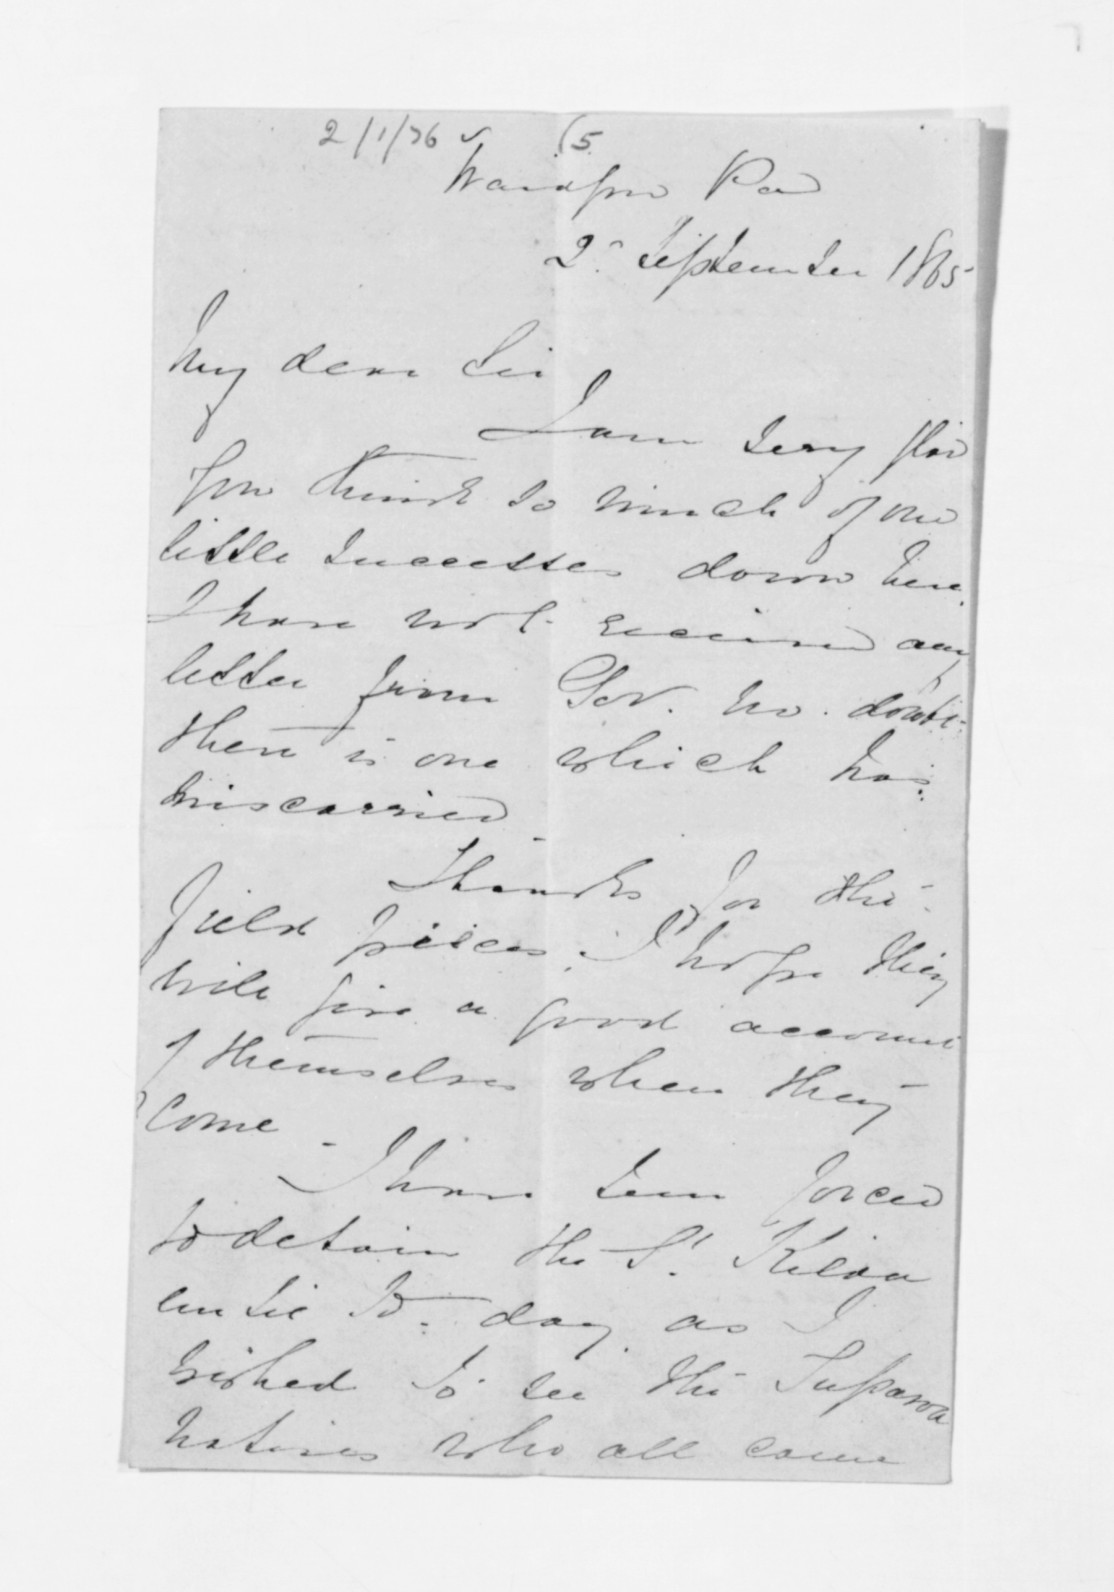 2/1/76 (5
Waiapu Pa
2d September 1865
My dear Sir
I am very glad
you think so much of our
little successes down here.
I have not received any
letter from Gov. no doubt
there is one which has
miscarried
Thanks for the
field pieces. I hope they
will give a good account
of themselves when they
come -
I have been forced
to detain the St. Kilda
until to day as I
wished to see the Tuparoa
Natives who all came